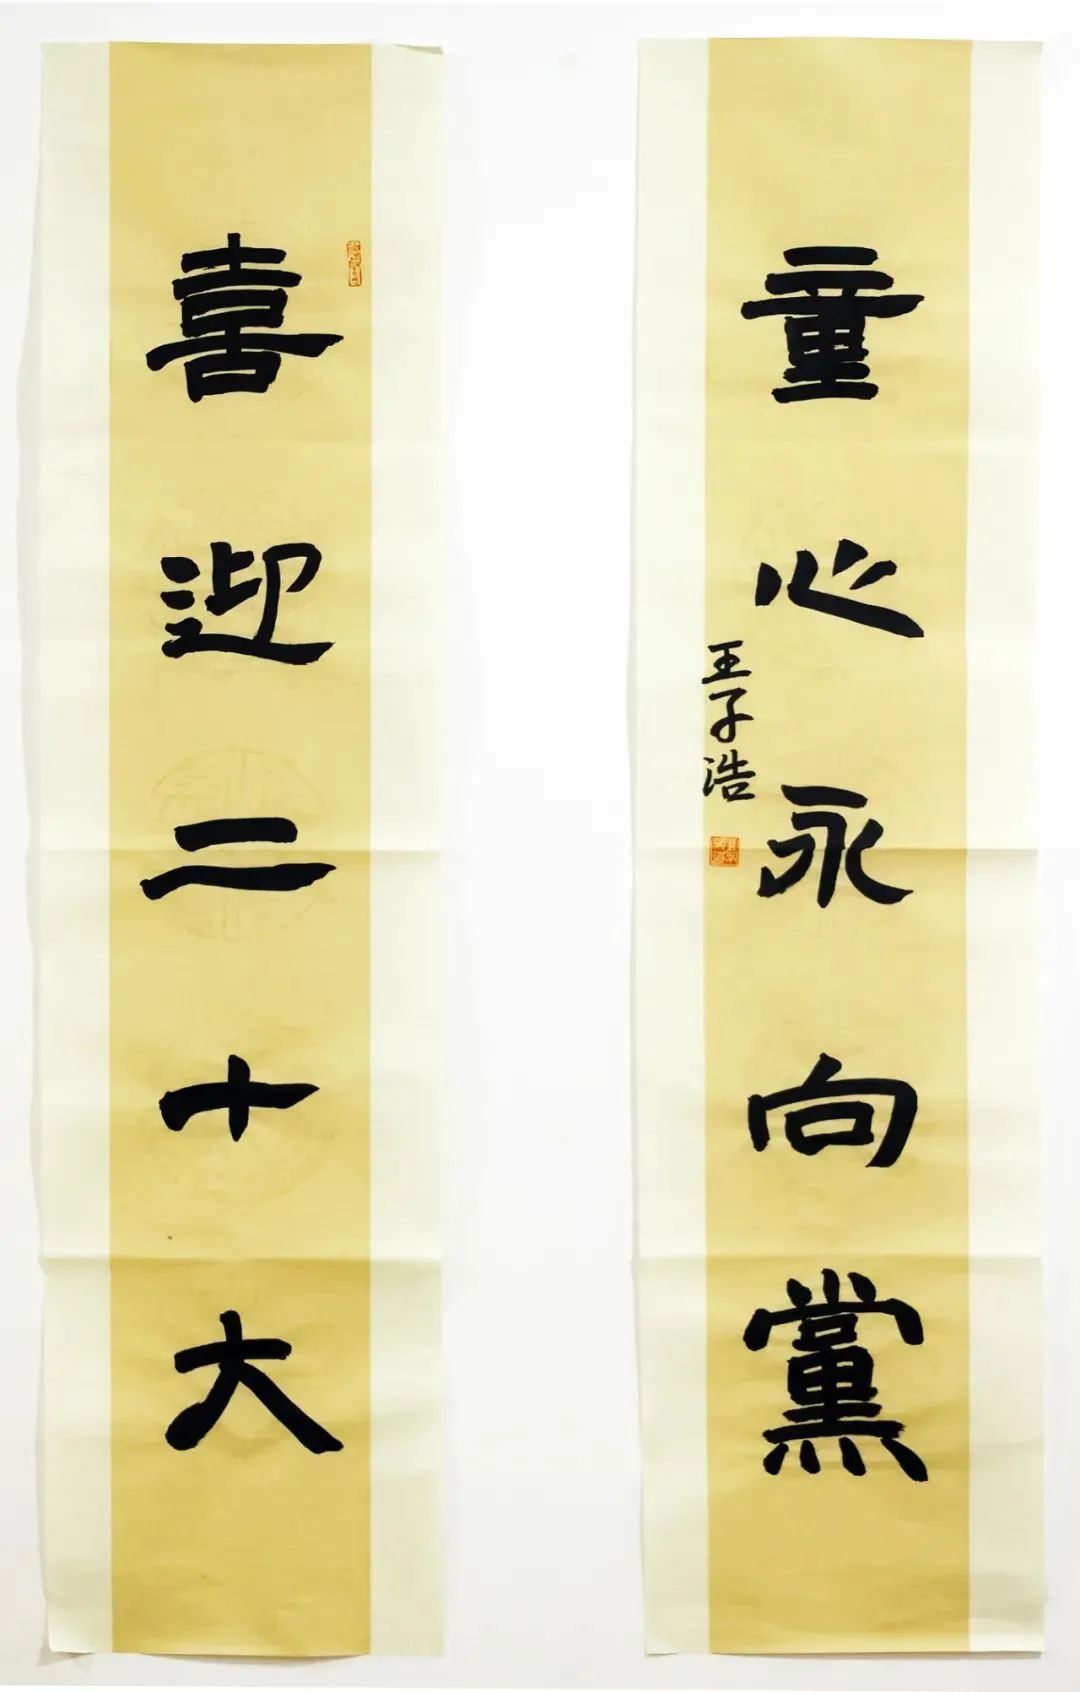 喜迎二十大
童心永向黨
王子浩